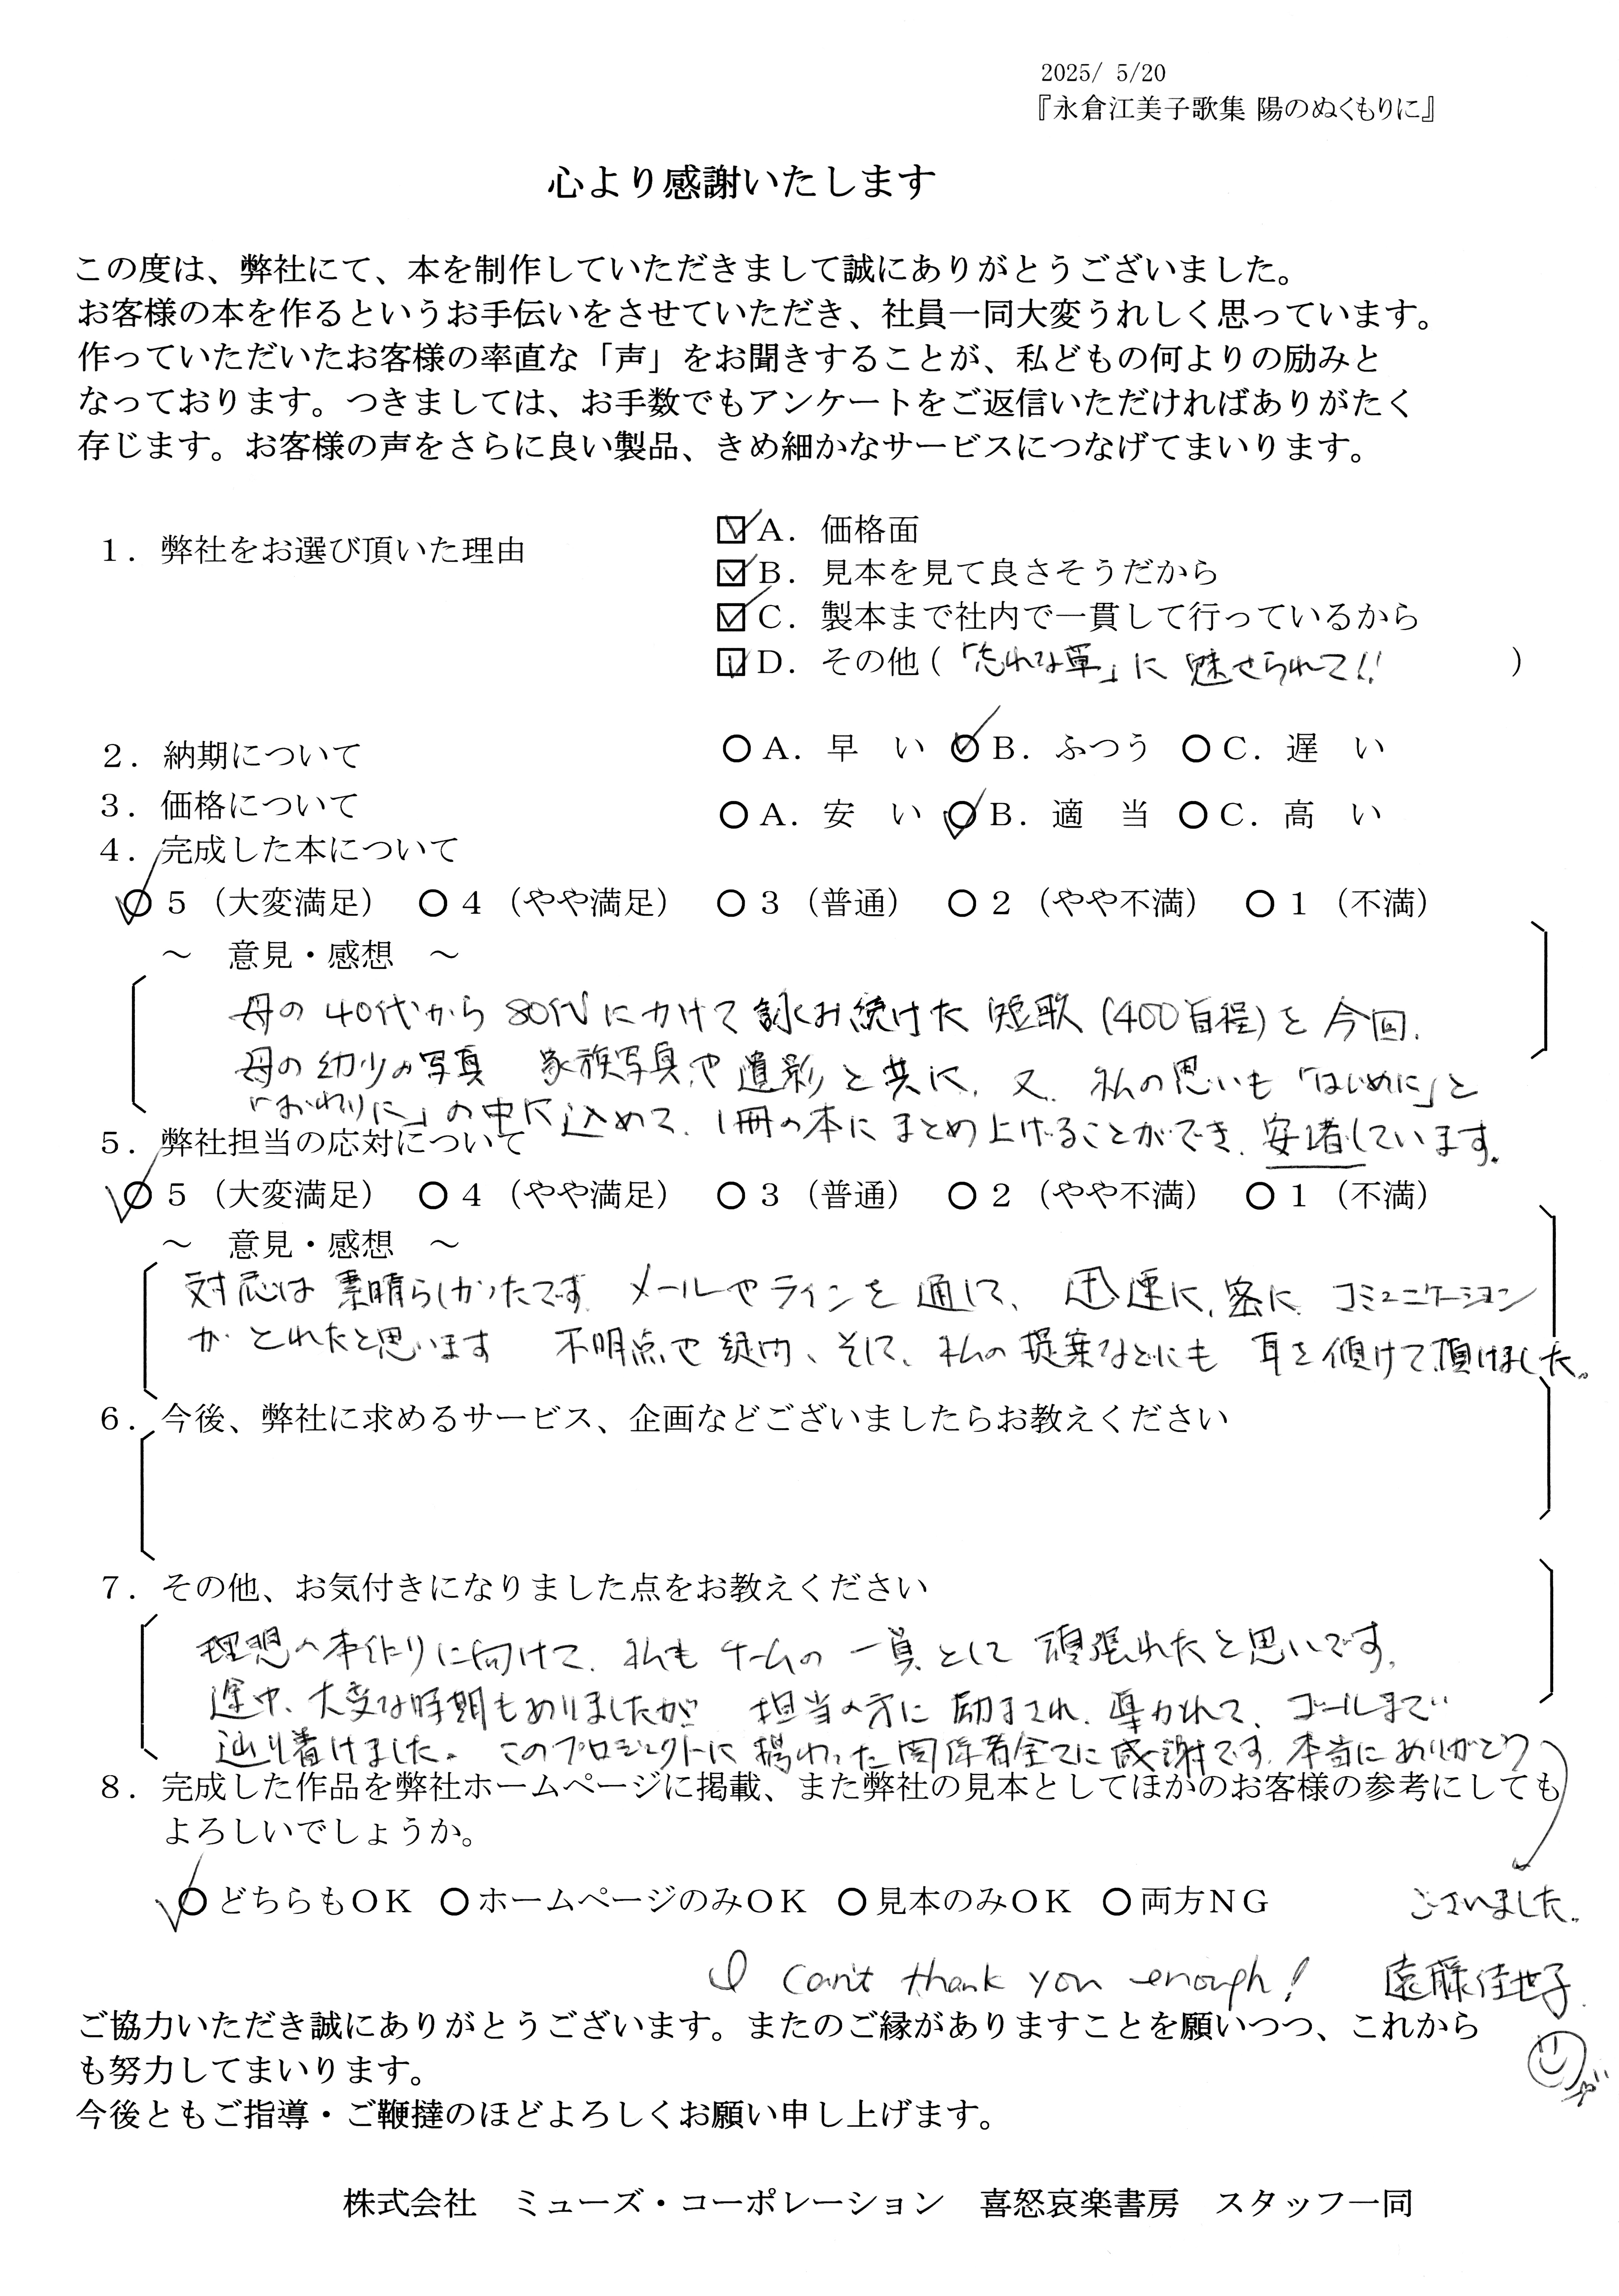 2025/ 5/20
『永倉江美子歌集 陽のぬくもりに』
心より感謝いたします
この度は、弊社にて、本を制作していただきまして誠にありがとうございました。
お客様の本を作るというお手伝いをさせていただき、社員一同大変うれしく思っています。
作っていただいたお客様の率直な「声」をお聞きすることが、私どもの何よりの励みと
なっております。つきましては、お手数でもアンケートをご返信いただければありがたく
存じます。お客様の声をさらに良い製品、きめ細かなサービスにつなげてまいります。
1．弊社をお選び頂いた理由
A．価格面
B．見本を見て良さそうだから
C．製本まで社内で一貫して行っているから
D．その他（「忘れな草」に 魅せられて!!）
2．納期について
A．早 い B．ふつう C．遅 い
3．価格について
A．安 い B．適 当 C．高 い
4．完成した本について
5（大変満足） 4（やや満足） 3（普通） 2（やや不満） 1（不満）
～ 意見・感想 ～
母の40代から80代にかけて詠み続けた短歌(400首程)を今回、
母の幼少の写真 家族写真や遺影と共に、又、私の思いも「はじめに」と
「おわりに」の中に込めて、1冊の本にまとめ上げることができ、安堵しています。
5．弊社担当の応対について
5（大変満足） 4（やや満足） 3（普通） 2（やや不満） 1（不満）
～ 意見・感想 ～
対応は素晴らしかったです。メールやラインを通して、迅速に、密に、コミュニケーション
がとれたと思います 不明点や疑問、そして、私の提案などにも耳を傾けて頂けました。
6．今後、弊社に求めるサービス、企画などございましたらお教えください
7．その他、お気付きになりました点をお教えください
理想の本作りに向けて、私もチームの一員として頑張れたと思いです。
途中、大変な時期もありましたが 担当の方に励まされ、導かれて、ゴールまで
辿り着けました。このプロジェクトに携わった関係者全てに感謝です。本当にありがとう
8．完成した作品を弊社ホームページに掲載、また弊社の見本としてほかのお客様の参考にしても
よろしいでしょうか。
どちらもOK ホームページのみOK 見本のみOK 両方NG
ございました。
I can't thank you enough! 遠藤佳世子
ご協力いただき誠にありがとうございます。またのご縁がありますことを願いつつ、これから
も努力してまいります。
今後ともご指導・ご鞭撻のほどよろしくお願い申し上げます。
株式会社 ミューズ・コーポレーション 喜怒哀楽書房 スタッフ一同